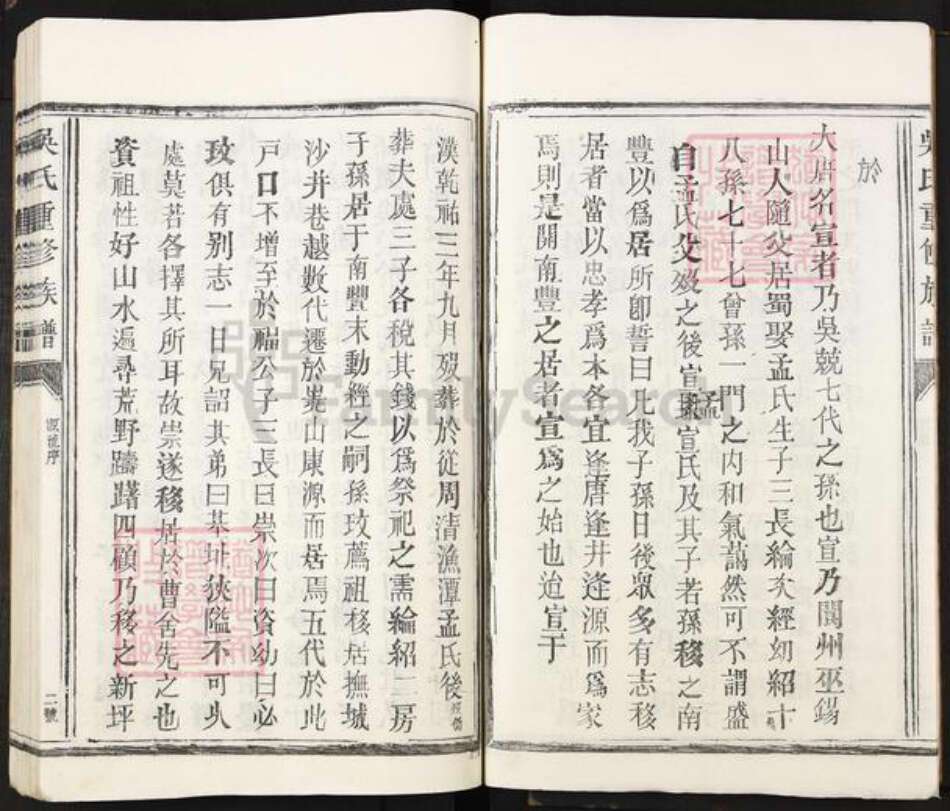 吳氏重修族譜
於
大唐名宣者乃吳兢七代之孫也宣乃閬州巫錫
山人隨父居蜀娶孟氏生子三長綸次經幼紹十
八孫七十七曾孫一門之內和氣藹然可不謂盛
自孟氏父歿之後宣孫宣氏及其子若孫移之南
孟
豐以爲居所卽誓曰凡我子孫日後眾多有志移
居者當以忠孝爲本各宜逢唐逢井逢源而爲家
焉則是開南豐之居者宣爲之始也迨宣于
漢乾祐三年九月歿葬於從周清漁潭孟氏後
葬夫處三子各稅其錢以爲祭祀之需綸紹二房
子孫居于南豐末動經之嗣孫玫薦祖移居撫城
沙井巷越數代遷於嵬山東源而居焉五代於此
戶口不增至於福公子三長曰崇次曰資幼曰必
玫俱有别志一日兄詔其弟曰基址狹隘不可乆
處莫若各擇其所耳故崇遂移居於曹舍先之也
資祖性好山水遍尋荒野躊躇四顧乃移之新坪
吳氏重修族譜
源流序
二號
FamilySearch